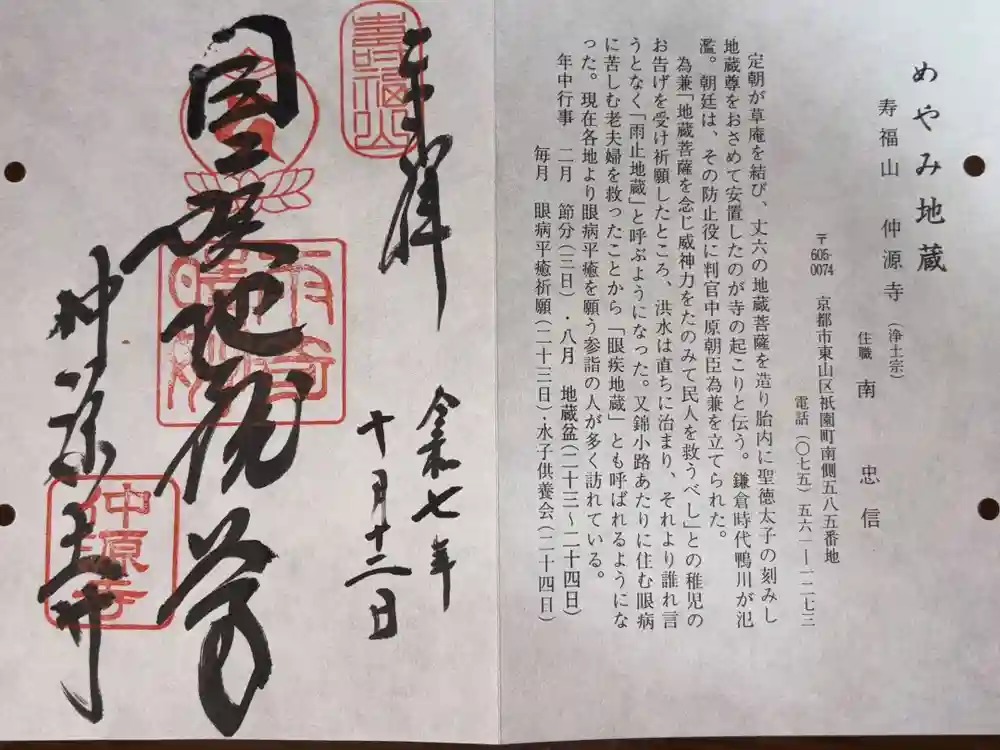 めやみ地蔵
寿福山 仲源寺(浄土宗)
住職 南 忠信
〒605-0074 京都市東山区祇園町南側五八五番地
電話(〇七五)五六一―一二七三
定朝が草庵を結び、丈六の地蔵菩薩を造り胎内に聖徳太子の刻みし
地蔵尊をおさめて安置したのが寺の起こりと伝う。鎌倉時代鴨川が氾
濫。朝廷は、その防止役に判官中原朝臣為兼を立てられた。
為兼「地蔵菩薩を念じ威神力をたのみて民人を救うべし」との稚児の
お告げを受け祈願したところ、洪水は直ちに治まり、それより誰れ言
うとなく「雨止地蔵」と呼ぶようになった。又錦小路あたりに住む眼病
に苦しむ老夫婦を救ったことから「眼疾地蔵」とも呼ばれるようにな
った。現在各地より眼病平癒を願う参詣の人が多く訪れている。
年中行事 二月 節分(三日)・八月 地蔵盆(二十三~二十四日)
毎月 眼病平癒祈願(二十三日)・水子供養会(二十四日)
壽福山
奉拝
令和七年
十月十二日
仲源寺
仲源寺